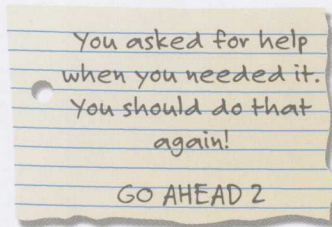 You asked for help
when you needed it.
You should do that
again!
GO AHEAD 2